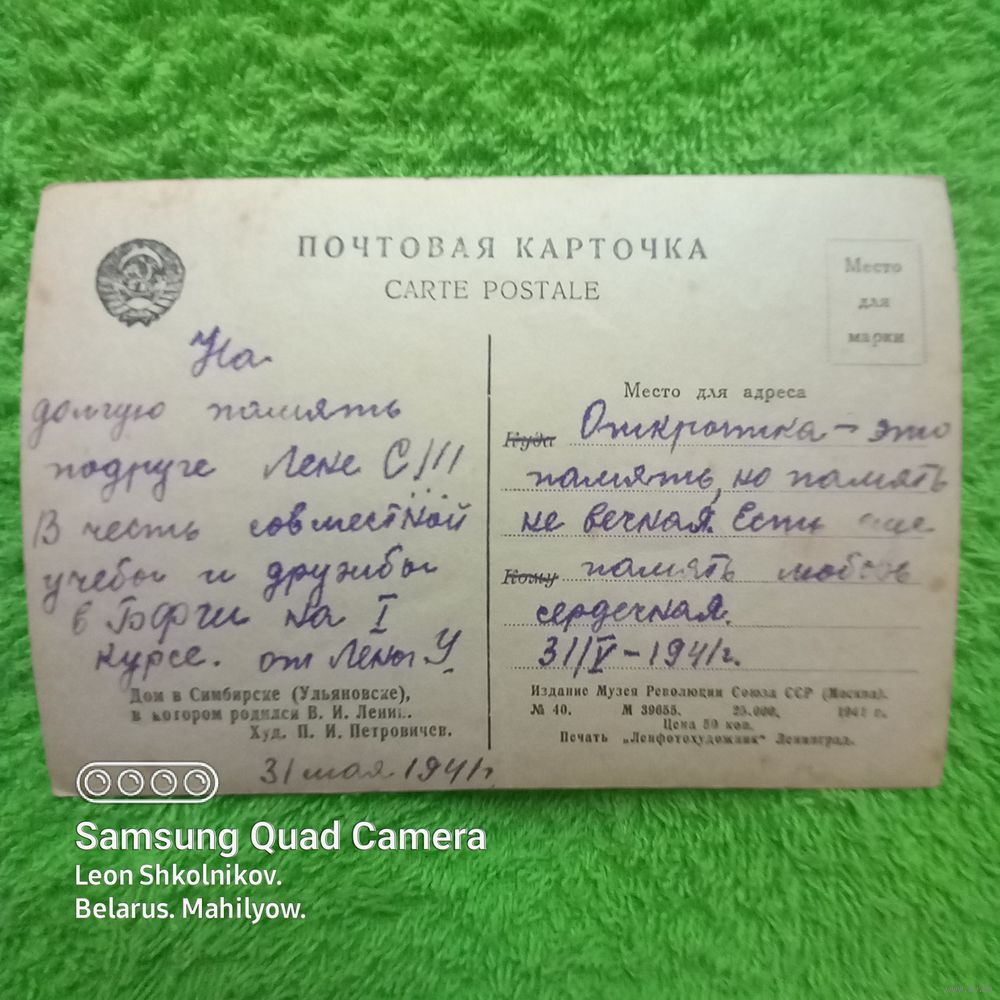 ПОЧТОВАЯ КАРТОЧКА
CARTE POSTALE
Место
для
марки
На
долгую память
подруге Лене С!!!
В честь совместной
учебы и дружбы
в БФГИ на I
курсе. от Лены У
Дом в Симбирске (Ульяновске),
в котором родился В. И. Ленин.
Худ. П. И. Петровичев.
31 мая 1941г
Место для адреса
Куда Открытка – это
память, но память
не вечная. Есть еще
Кому память любовь
сердечная.
31/V – 1941г.
Издание Музея Революции Союза ССР (Москва).
№ 40. М 39655. 25.000. 1941 г.
Цена 50 коп.
Печать „Ленфотохудожник“ Ленинград.
Samsung Quad Camera
Leon Shkolnikov.
Belarus. Mahilyow.